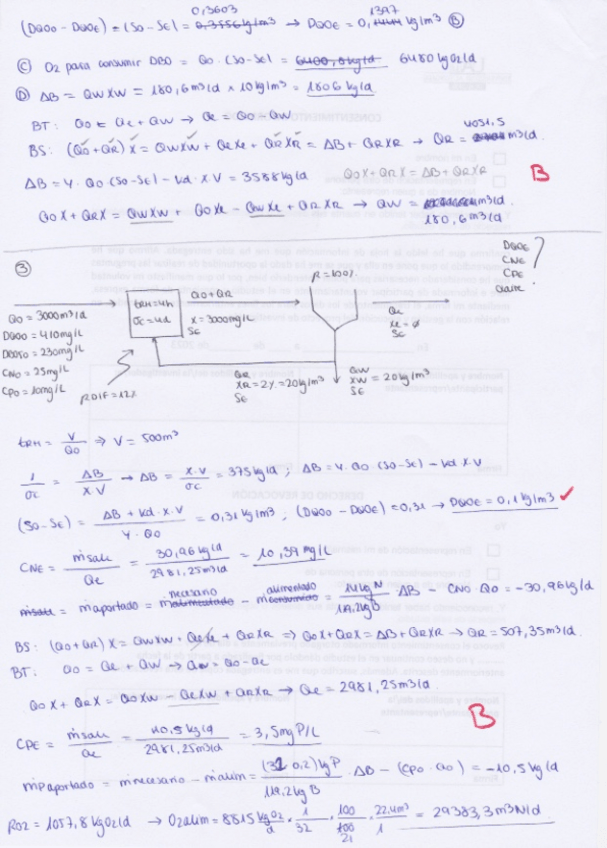 0,3603 1397
(DQO0 - DQOE) = (S0 - SE) = 0,3556 kg/m3 → DQOE = 0, kg/m3 (B)
(C) O2 para consumir DBO = Q0 · (S0 - SE) = 6400,8 kg/d 6480 kgO2/d
(D) ΔB = QW XW = 180,6 m3/d x 10 kg/m3 = 1806 kg/d
BT: Q0 = Qe + QW → Qe = Q0 - QW
4051,5
BS: (Q0 + QR) X = QW XW + Qe Xe + QR XR = ΔB + QR XR → QR = m3/d.
ΔB = Y · Q0 (S0 - SE) - Kd · X V = 3588 kg/d Q0 X + QR X = ΔB + QR XR B
Q0 X + QR X = QW XW + Q0 Xe - QW Xe + QR XR → QW = m3/d.
180,6 m3/d
(3)
DQOE
CNE
CPE
Qaire
?
R = 100%
Q0 = 3000 m3/d
DQO0 = 410 mg/L
DBO50 = 230 mg/L
CN0 = 25 mg/L
CP0 = 10 mg/L
tRH = 4h
σc = 4d
Q0 + QR
X = 3000 mg/L
SE
Qe
Xe = ∅
SE
QR
XR = 2% = 20 kg/m3
SE
QW
XW = 20 kg/m3
SE
RDIF = 12%
tRH = V/Q0 ⇒ V = 500 m3
1/σc = ΔB/X·V → ΔB = X·V/σc = 375 kg/d ; ΔB = Y · Q0 · (S0 - SE) - Kd · X · V
(S0 - SE) = ΔB + Kd · X · V / Y · Q0 = 0,31 kg/m3 ; (DQO0 - DQOE) = 0,31 → DQOE = 0,1 kg/m3 ✓
CNE = ṁsale/Qe = 30,96 kg/d / 2981,25 m3/d = 10,39 mg/L
ṁsale = ṁaportado = ṁnecesario - ṁalimentado = 14 kg N / 114,2 kg B · ΔB - CN0 Q0 = -30,96 kg/d
BS: (Q0 + QR) X = QW XW + Qe Xe + QR XR ⇒ Q0 X + QR X = ΔB + QR XR → QR = 507,35 m3/d.
BT: Q0 = Qe + QW → QW = Q0 - Qe
Q0 X + QR X = Q0 XW - Qe XW + QR XR → Qe = 2981,25 m3/d.
B
CPE = ṁsale/Qe = 10,5 kg/d / 2981,25 m3/d = 3,5 mg P/L
ṁP aportado = ṁnecesario - ṁalim = (31 0,2) kg P / 114,2 kg B · ΔB - (CP0 · Q0) = -10,5 kg/d
RO2 = 1057,8 kgO2/d → O2 alim = 8815 kgO2/d · 1/32 · 100/21 · 22,4 m3/1 = 29383,3 m3N/d